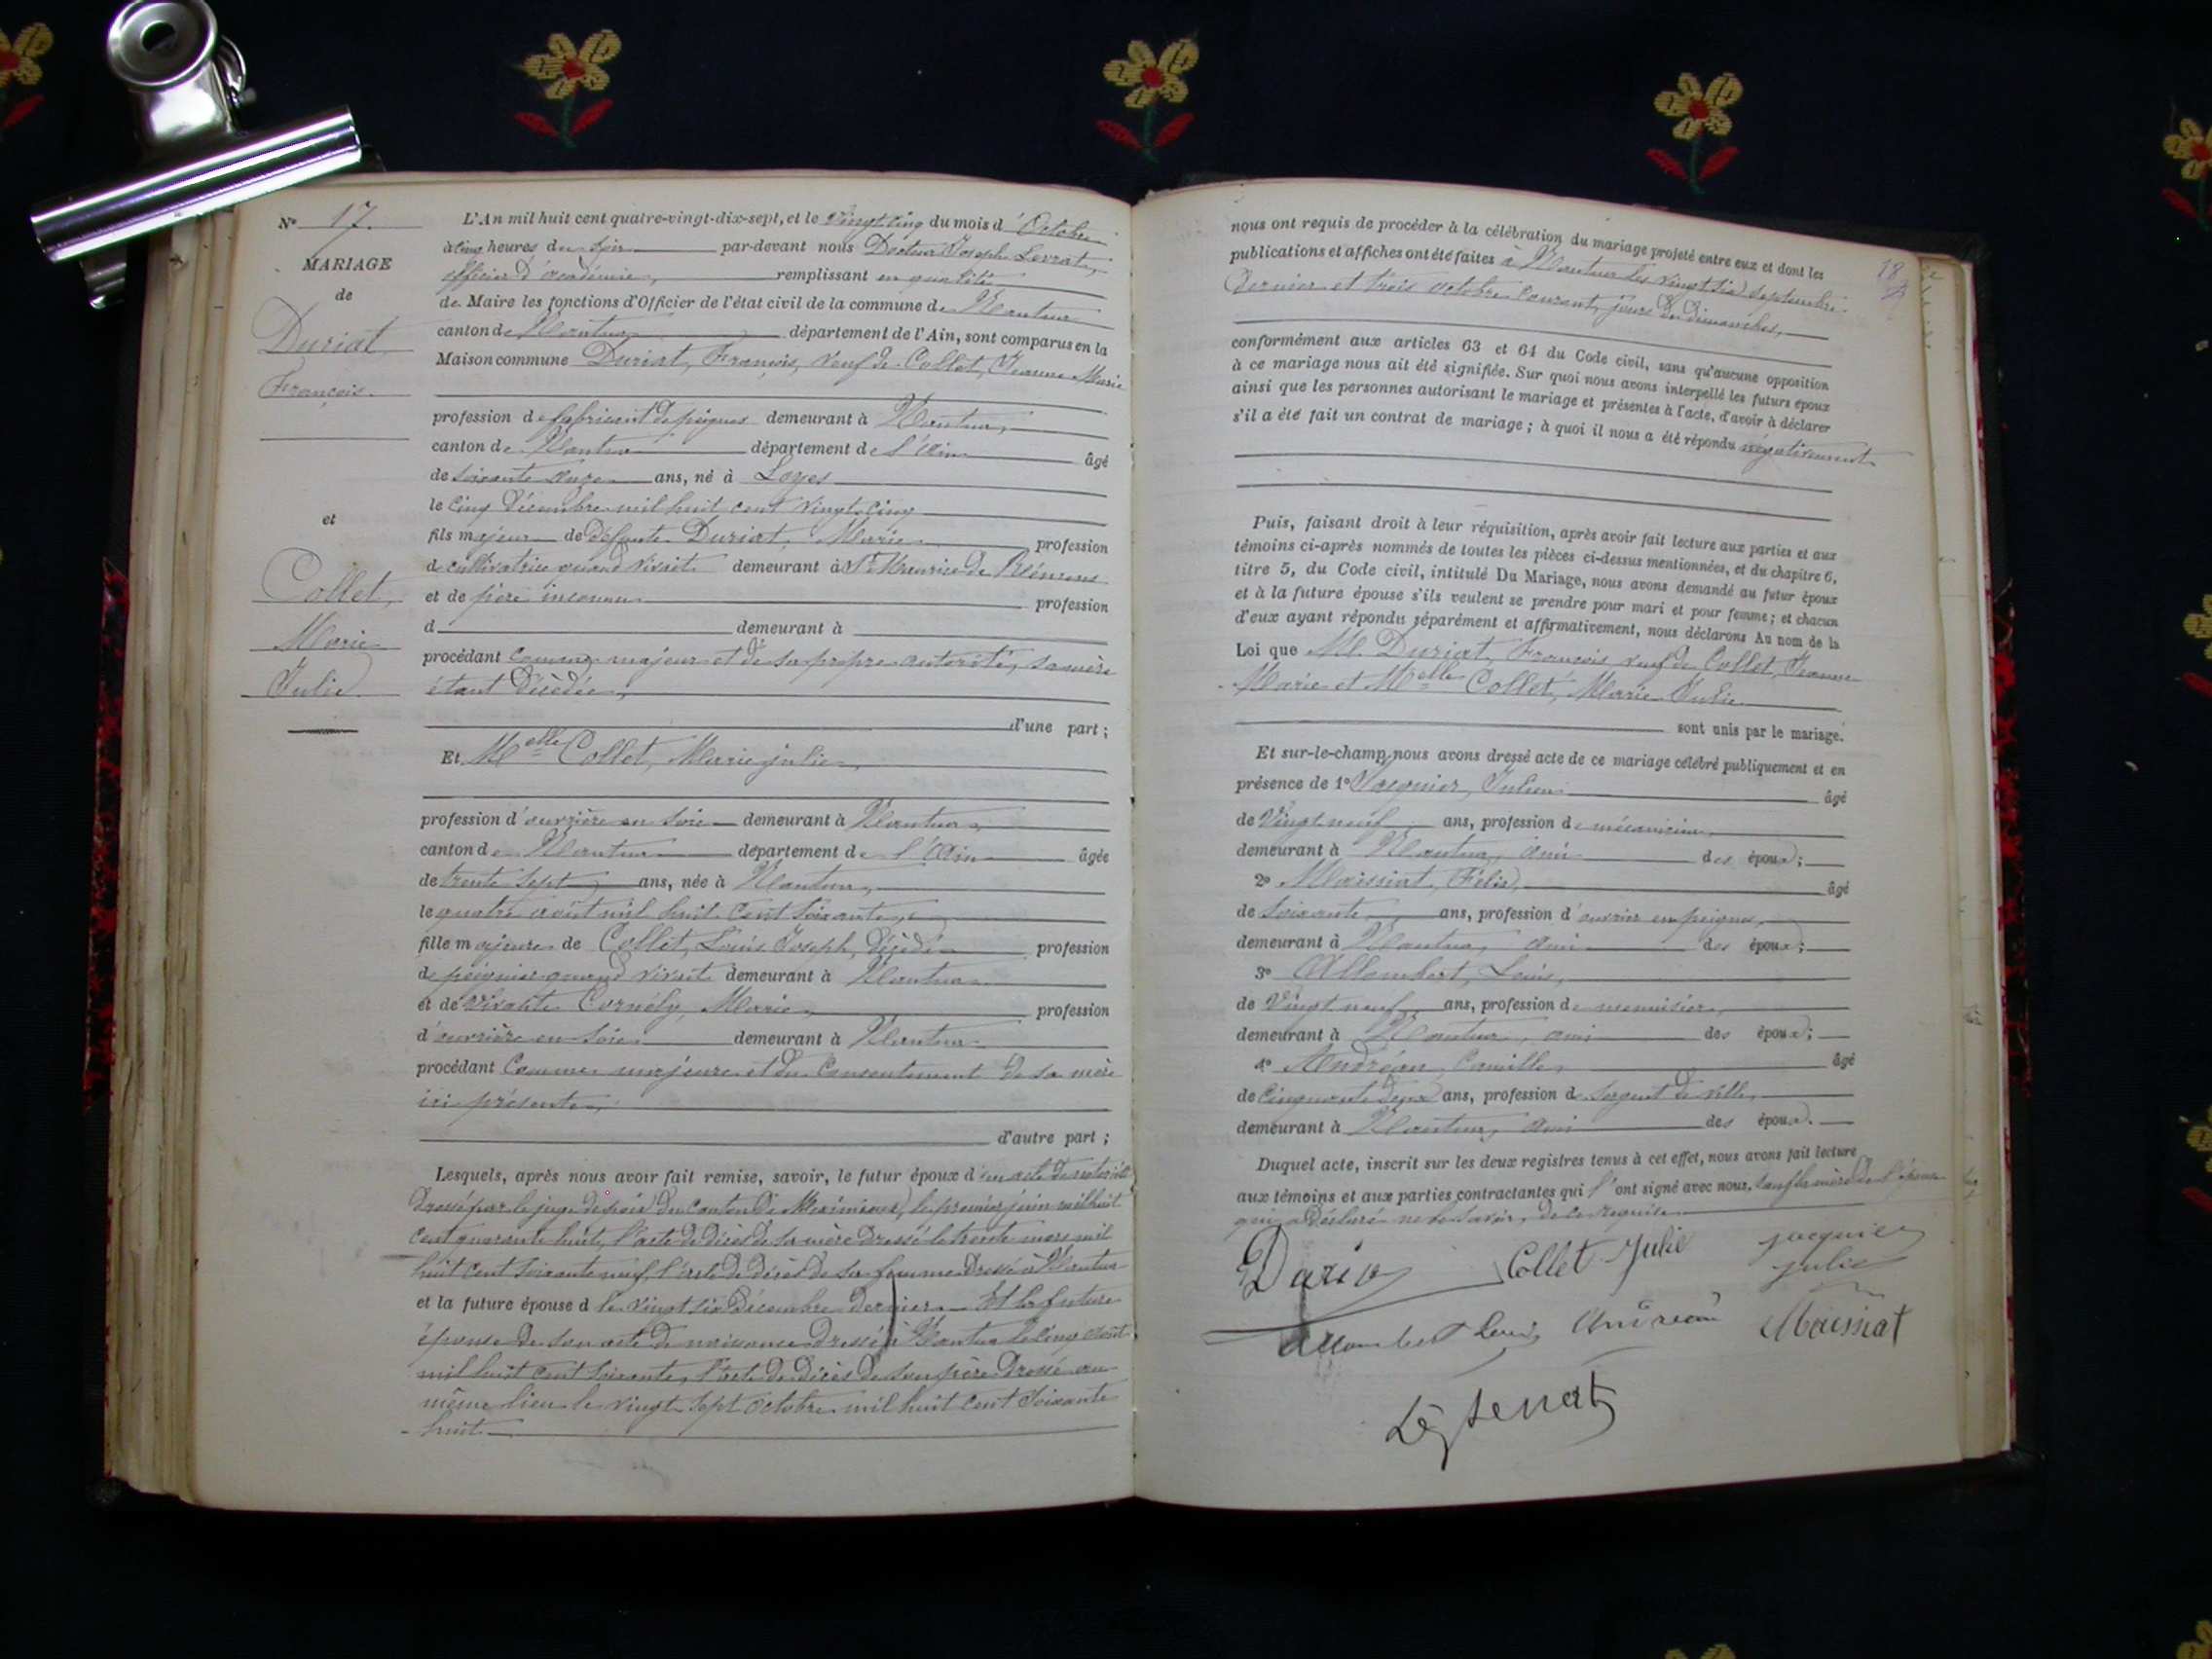 N° 17.
MARIAGE
de
Duriat
François.
et
Collet,
Marie
Julie
L'An mil huit cent quatre-vingt-dix-sept, et le vingt cinq du mois d'Octobre
à cinq heures du soir par-devant nous Docteur Joseph Levrat,
officier d'académie, remplissant en qualité
de Maire les fonctions d'Officier de l'état civil de la commune de Nantua
canton de Nantua département de l'Ain, sont comparus en la
Maison commune Duriat, François, veuf de Collet, Jeanne Marie
profession de fabricant de peignes demeurant à Nantua,
canton de Nantua département de l'Ain âgé
de soixante onze ans, né à Loyes
le cinq Décembre mil huit cent vingt cinq
fils majeur de défunte Duriat, Marie profession
de cultivatrice quand vivait demeurant à St Maurice de Rémens
et de père inconnu profession
d demeurant à
procédant comme majeur et de sa propre autorité, sa mère
étant décédée,
d'une part ;
Et Melle Collet, Marie julie,
profession d'ouvrière en soie demeurant à Nantua,
canton de Nantua département de l'Ain âgée
de trente sept ans, née à Nantua,
le quatre août mil huit cent soixante,
fille majeure de Collet, Louis Joseph, décédé profession
de peignier quand vivait demeurant à Nantua
et de vivante Cornély, Marie, profession
d'ouvrière en soie demeurant à Nantua
procédant comme majeure et du consentement de sa mère
ici présente,
d'autre part ;
Lesquels, après nous avoir fait remise, savoir, le futur époux d'un acte de notoriété
dressé par le juge de paix du canton de Meximieux, le premier juin mil huit
cent quarante huit, l'acte de décès de sa mère dressé le trente mars mil
huit cent soixante neuf, l'acte de décès de sa femme dressé à Nantua
et la future épouse d le vingt six Décembre dernier. Et la future
épouse de son acte de naissance dressé à Nantua le cinq août
mil huit cent soixante, l'acte de décès de son père dressé au
même lieu le vingt sept octobre mil huit cent soixante
huit
18
nous ont requis de procéder à la célébration du mariage projeté entre eux et dont les
publications et affiches ont été faites à Nantua les vingt six septembre
dernier et trois octobre courant, jours de dimanches,
conformément aux articles 63 et 64 du Code civil, sans qu'aucune opposition
à ce mariage nous ait été signifiée. Sur quoi nous avons interpellé les futurs époux
ainsi que les personnes autorisant le mariage et présentes à l'acte, d'avoir à déclarer
s'il a été fait un contrat de mariage ; à quoi il nous a été répondu négativement
Puis, faisant droit à leur réquisition, après avoir fait lecture aux parties et aux
témoins ci-après nommés de toutes les pièces ci-dessus mentionnées, et du chapitre 6,
titre 5, du Code civil, intitulé Du Mariage, nous avons demandé au futur époux
et à la future épouse s'ils veulent se prendre pour mari et pour femme ; et chacun
d'eux ayant répondu séparément et affirmativement, nous déclarons Au nom de la
Loi que M. Duriat, François veuf de Collet, Jeanne
Marie et Melle Collet, Marie Julie
sont unis par le mariage.
Et sur-le-champ nous avons dressé acte de ce mariage célébré publiquement et en
présence de 1° Jacquier, Julien âgé
de vingt neuf ans, profession de mécanicien
demeurant à Nantua, ami des époux ;
2° Maissiat, Félix, âgé
de soixante ans, profession d'ouvrier en peignes,
demeurant à Nantua, ami des époux ;
3° Allombert, Louis,
de vingt neuf ans, profession de menuisier,
demeurant à Nantua, ami des époux ;
4° Andréan, Camille, âgé
de cinquante deux ans, profession de sergent de ville,
demeurant à Nantua, ami des époux.
Duquel acte, inscrit sur les deux registres tenus à cet effet, nous avons fait lecture
aux témoins et aux parties contractantes qui l'ont signé avec nous, sauf la mère de l'épouse
qui a déclaré ne le savoir, de ce requise
Collet Julie
jacquier
julien
allombert Louis
Maissiat